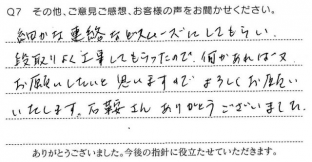 Q7 その他、ご意見ご感想、お客様の声をお聞かせください。
細かな連絡などスムーズにしてもらい、
段取りよく工事してもらったので、何かあれば又
お願いしたいと思いますので よろしくお願い
いたします。石鞍さん ありがとうございました。
ありがとうございました。今後の指針に役立たせていただきます。